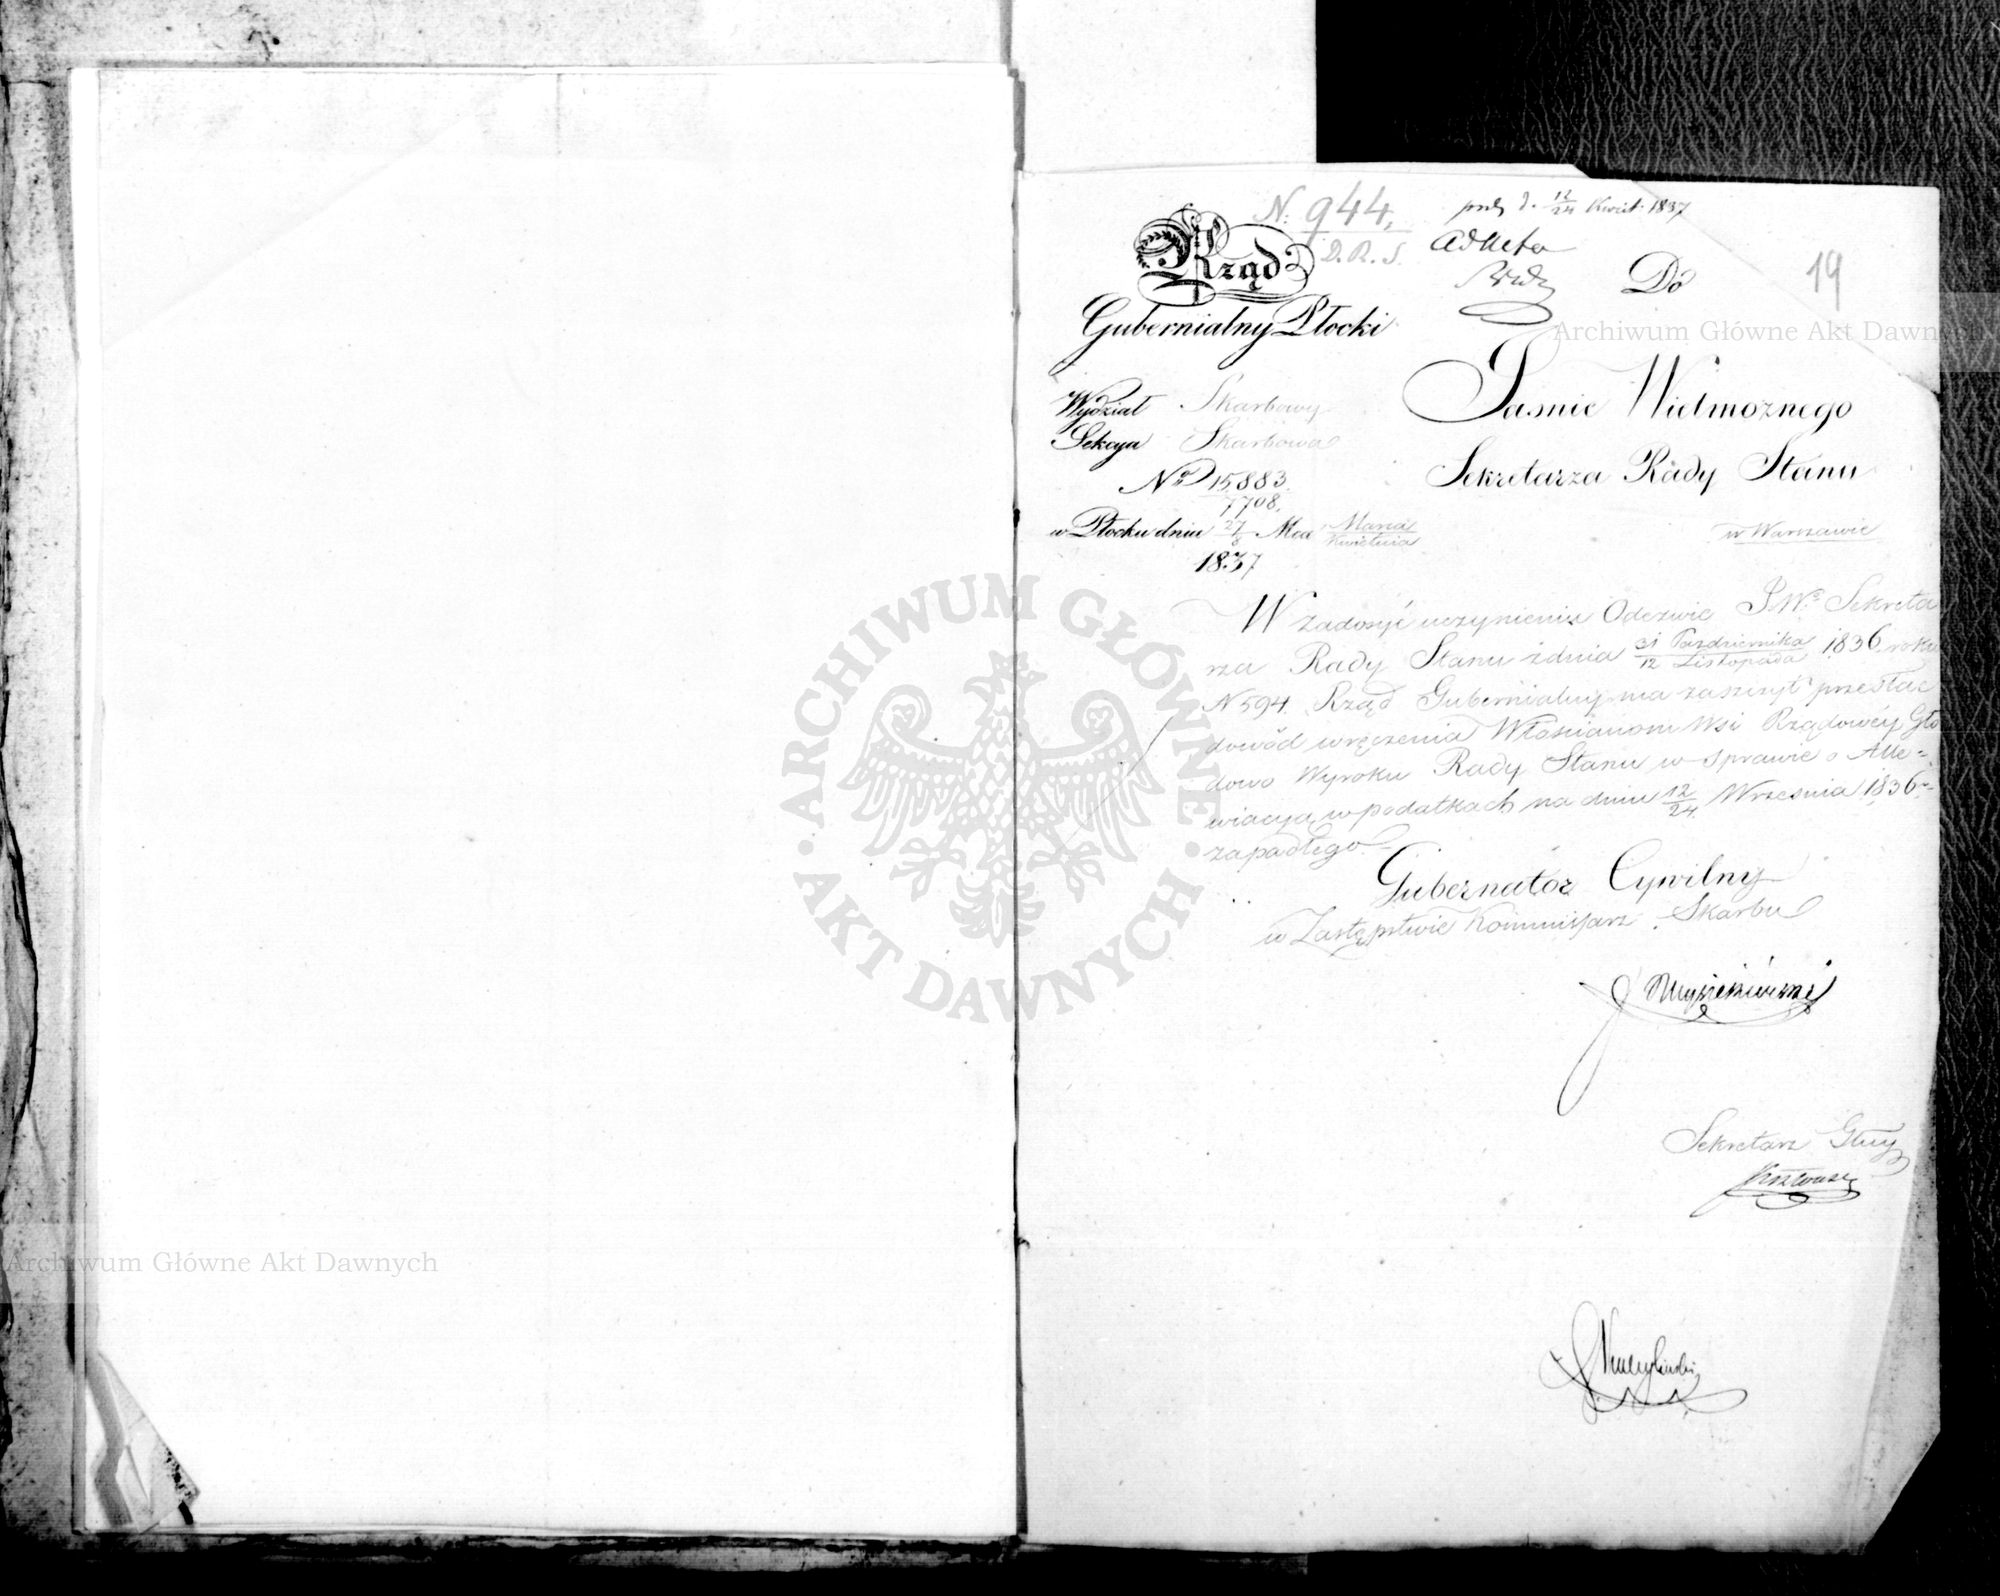 N: 944,
D. R. S.
d. 12/24 Kwiet. 1837
Ad Acta
19
Rząd
Gubernialny Płocki
Do
Jaśnie Wielmożnego
Sekretarza Rady Stanu
w Warszawie
Wydział Skarbowy
Sekcya Skarbowa
No 15,883.
7708.
w Płocku dnia 27/8 Mca Marca/Kwietnia
1837
W zadosyć uczynieniu Odezwie J.Wo Sekreta
rza Rady Stanu z dnia 31 Października/12 Listopada 1836 roku
N 594. Rząd Gubernialny ma zaszczyt przesłać
dowód wręczenia Włościanom Wsi Rządowéy Gło
dowo Wyroku Rady Stanu w sprawie o Alle-
wiacyą w podatkach na dniu 12/24 Września 1836 r.
zapadłego.
Gubernator Cywilny
w Zastępstwie Kommissarz Skarbu
Sekretarz Głny
Archiwum Główne Akt Dawnych
ARCHIWUM GŁÓWNE
· AKT DAWNYCH ·
Archiwum Główne Akt Dawnych